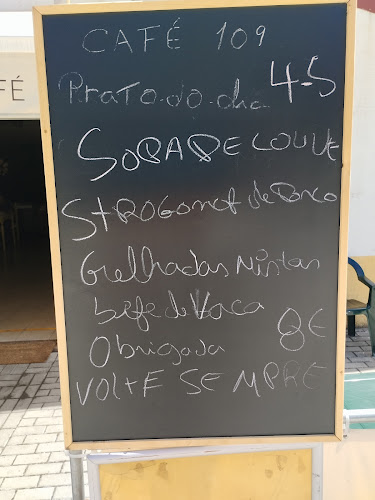 CAFÉ 109
FÉ
Prato.do.dia 4-5
SOPA DE COUVE
StROGONOf de Porco
Grelhadas Mistas
bife de Vaca
8€
Obrigada
VOLTE SEMPRE